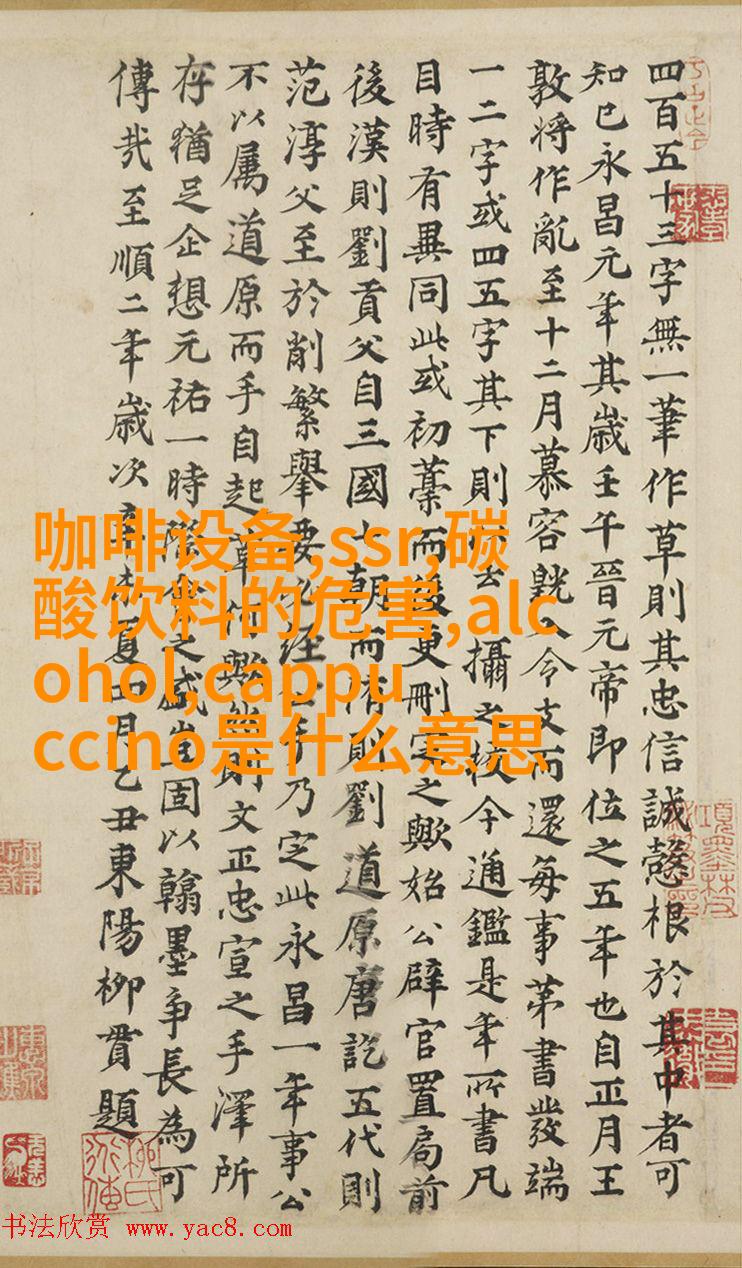 四百五十三字無一筆作草則其忠信誠慤根於其中者可
知已永昌元年其歲壬午晉元帝即位之五年也自正月王
敦將作亂至十二月慕容皝入令支而還每事第書發端
一二字或四五字其下則以攝之校今通鑑是年所書凡
目時有異同此或初藁而後更刪定之歟始公辟官置局前
後漢則劉貢父自三國七朝而隋則劉道原唐訖五代則
范淳父至於削繁舉要必經公手乃定此永昌一年事公
不以属道原而手自起草何歟此則文正忠宣之手澤所
存猶足企想元祐一時際之盛豈固以翰墨爭長為可
傳哉至順二年歲次辛未夏四月乙丑東陽柳貫題
柳氏
咖啡设备,ssr,碳
酸饮料的危害,alc
ohol,cappu
ccino是什么意思
书法欣赏 www.yac8.com